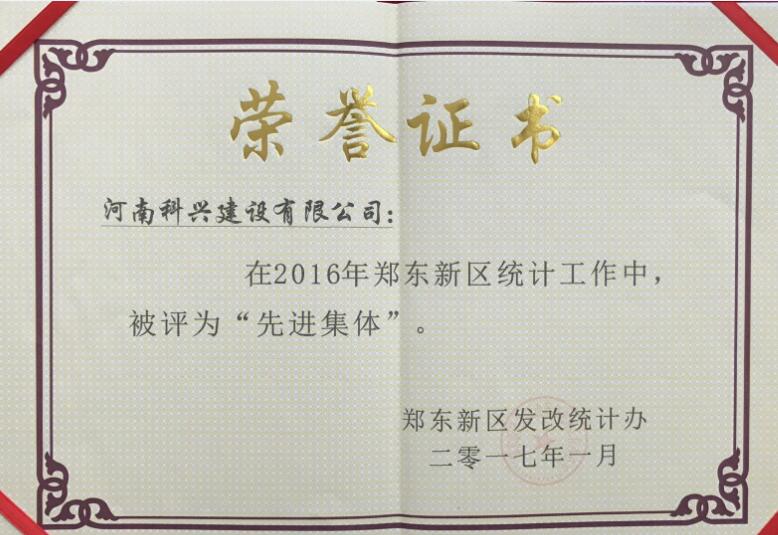 荣誉证书
河南科兴建设有限公司：
在2016年郑东新区统计工作中，
被评为“先进集体”。
郑东新区发改统计办
二零一七年一月